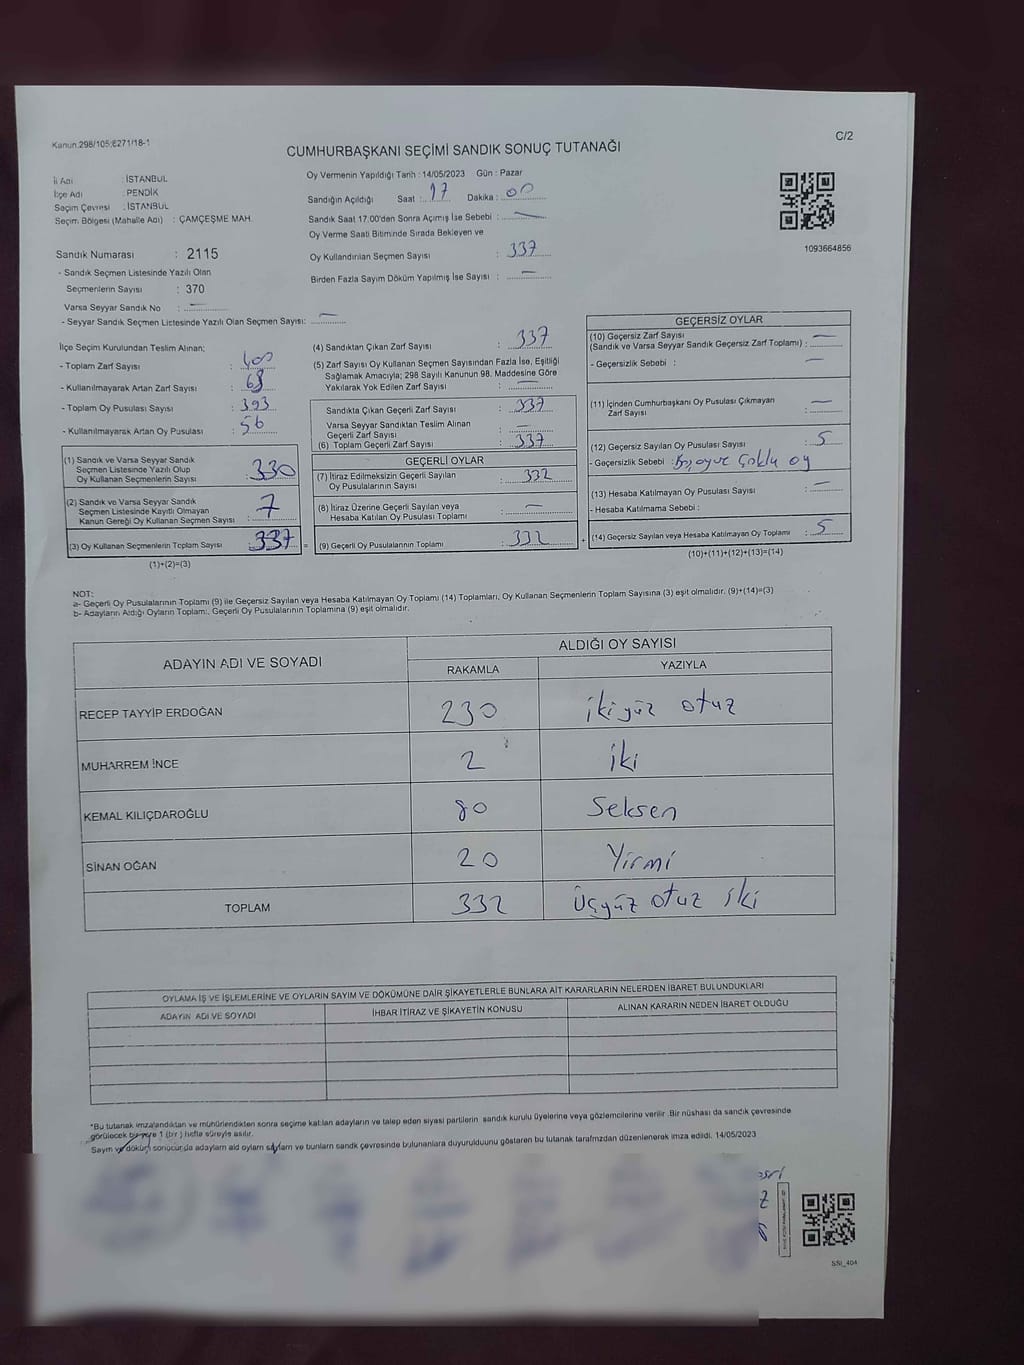 Kanun:298/105;6271/18-1
C/2
CUMHURBAŞKANI SEÇİMİ SANDIK SONUÇ TUTANAĞI
İl Adı : İSTANBUL
İlçe Adı : PENDİK
Seçim Çevresi : İSTANBUL
Seçim Bölgesi (Mahalle Adı) : ÇAMÇEŞME MAH.
Oy Vermenin Yapıldığı Tarih : 14/05/2023 Gün : Pazar
Sandığın Açıldığı Saat : 17 Dakika : 00
Sandık Saat 17.00'den Sonra Açımış İse Sebebi : —
Oy Verme Saati Bitiminde Sırada Bekleyen ve
Oy Kullandırılan Seçmen Sayısı : 337
Birden Fazla Sayım Döküm Yapılmış İse Sayısı : —
1093664856
Sandık Numarası : 2115
- Sandık Seçmen Listesinde Yazılı Olan
Seçmenlerin Sayısı : 370
Varsa Seyyar Sandık No : —
- Seyyar Sandık Seçmen Listesinde Yazılı Olan Seçmen Sayısı: —
İlçe Seçim Kurulundan Teslim Alınan;
- Toplam Zarf Sayısı : 400
- Kullanılmayarak Artan Zarf Sayısı : 63
- Toplam Oy Pusulası Sayısı : 393
- Kullanılmayarak Artan Oy Pusulası : 56
(1) Sandık ve Varsa Seyyar Sandık
Seçmen Listesinde Yazılı Olup
Oy Kullanan Seçmenlerin Sayısı : 330
(2) Sandık ve Varsa Seyyar Sandık
Seçmen Listesinde Kayıtlı Olmayan
Kanun Gereği Oy Kullanan Seçmen Sayısı : 7
(3) Oy Kullanan Seçmenlerin Toplam Sayısı : 337 =
(1)+(2)=(3)
(4) Sandıktan Çıkan Zarf Sayısı : 337
(5) Zarf Sayısı Oy Kullanan Seçmen Sayısından Fazla İse, Eşitliği
Sağlamak Amacıyla; 298 Sayılı Kanunun 98. Maddesine Göre
Yakılarak Yok Edilen Zarf Sayısı : —
Sandıkta Çıkan Geçerli Zarf Sayısı : 337
Varsa Seyyar Sandıktan Teslim Alınan
Geçerli Zarf Sayısı : —
(6) Toplam Geçerli Zarf Sayısı : 337
GEÇERLİ OYLAR
(7) İtiraz Edilmeksizin Geçerli Sayılan
Oy Pusulalarının Sayısı : 332
(8) İtiraz Üzerine Geçerli Sayılan veya
Hesaba Katılan Oy Pusulası Toplamı : —
(9) Geçerli Oy Pusulalarının Toplamı : 332 +
GEÇERSİZ OYLAR
(10) Geçersiz Zarf Sayısı
(Sandık ve Varsa Seyyar Sandık Geçersiz Zarf Toplamı) : —
- Geçersizlik Sebebi : —
(11) İçinden Cumhurbaşkanı Oy Pusulası Çıkmayan
Zarf Sayısı : —
(12) Geçersiz Sayılan Oy Pusulası Sayısı : 5
- Geçersizlik Sebebi : Boş oy ve Çoklu oy
(13) Hesaba Katılmayan Oy Pusulası Sayısı : —
- Hesaba Katılmama Sebebi :
(14) Geçersiz Sayılan veya Hesaba Katılmayan Oy Toplamı : 5
(10)+(11)+(12)+(13)=(14)
NOT:
a- Geçerli Oy Pusulalarının Toplamı (9) ile Geçersiz Sayılan veya Hesaba Katılmayan Oy Toplamı (14) Toplamları, Oy Kullanan Seçmenlerin Toplam Sayısına (3) eşit olmalıdır. (9)+(14)=(3)
b- Adayların Aldığı Oyların Toplamı, Geçerli Oy Pusulalarının Toplamına (9) eşit olmalıdır.
ADAYIN ADI VE SOYADI ALDIĞI OY SAYISI
RAKAMLA YAZIYLA
RECEP TAYYİP ERDOĞAN 230 ikiyüz otuz
MUHARREM İNCE 2 iki
KEMAL KILIÇDAROĞLU 80 Seksen
SİNAN OĞAN 20 Yirmi
TOPLAM 332 Üçyüz otuz iki
OYLAMA İŞ VE İŞLEMLERİNE VE OYLARIN SAYIM VE DÖKÜMÜNE DAİR ŞİKAYETLERLE BUNLARA AİT KARARLARIN NELERDEN İBARET BULUNDUKLARI
ADAYIN ADI VE SOYADI İHBAR İTİRAZ VE ŞİKAYETİN KONUSU ALINAN KARARIN NEDEN İBARET OLDUĞU
*Bu tutanak imzalandıktan ve mühürlendikten sonra seçime katılan adayların ve talep eden siyasi partilerin sandık kurulu üyelerine veya gözlemcilerine verilir. Bir nüshası da sandık çevresinde
görülecek bir yere 1 (bir) hafta süreyle asılır.
Sayım ve döküm sonucunda adayların aldı oyların sayları ve bunların sandk çevresinde bulunanlara duyurulduunu gösteren bu tutanak tarafmzdan düzenlenerek imza edildi. 14/05/2023
SSI_404